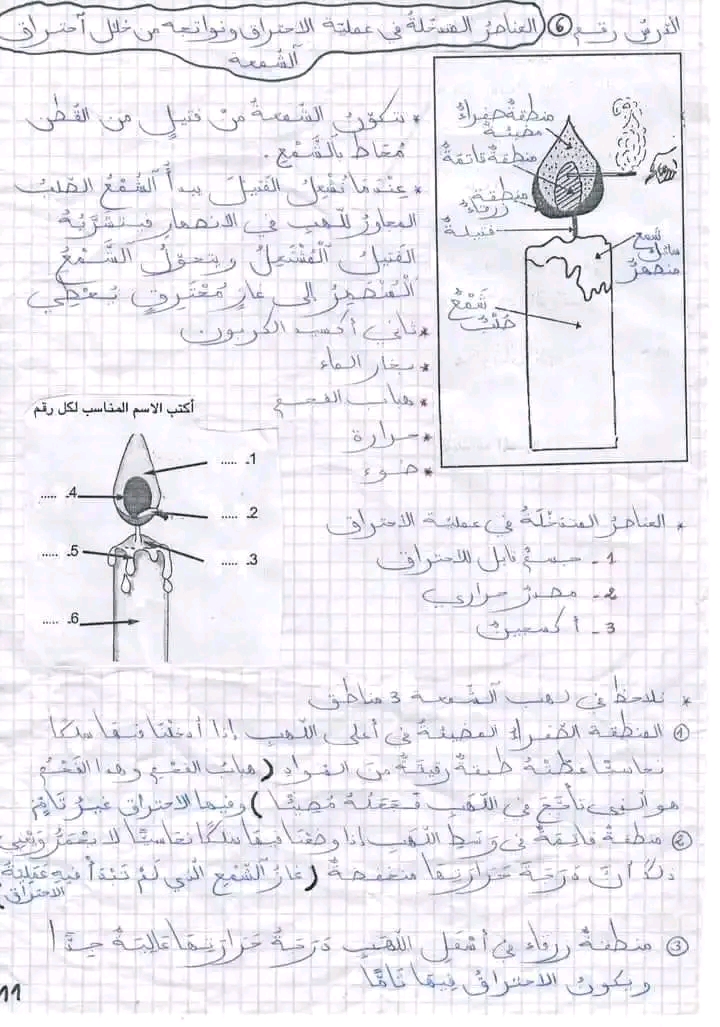 الدرس رقم 6 العناصر المتدخلة في عملية الاحتراق ونواتجه من خلال احتراق
الشمعة
* تتكون الشمعة من فتيل من القطن
محاط بالشمع.
* عندما نشعل الفتيل يبدأ الشمع الصلب
المجاور للهب في الانصهار فيتشربه
الفتيل المشتعل ويتحول الشمع
المنصهر إلى غاز محترق يعطي
* ثاني أكسيد الكربون
* بخار الماء
* هباب الفحم
* حرارة
* ضوء
منطقة صفراء
مضيئة
منطقة قاتمة
منطقة
زرقاء
فتيلة
شمع
سائل
منصهر
شمع
صلب
أكتب الاسم المناسب لكل رقم
1. .....
2. .....
3. .....
4. .....
5. .....
6. .....
* العناصر المتدخلة في عملية الاحتراق
1 - جسم قابل للاحتراق
2 - مصدر حراري
3 - أكسجين
* نلاحظ في لهب الشمعة 3 مناطق
1 المنطقة الصفراء المضيئة في أعلى اللهب إذا أدخلنا فيها سلكا
نحاسيا غطته طبقة رقيقة من السواد (هباب الفحم وهذا الفحم
هو الذي تأجج في اللهب فجعله مضيئا) وفيها الاحتراق غير تام
2 منطقة قاتمة في وسط اللهب إذا وضعنا فيها سلكا نحاسيا لا يحمر ويعني
ذلك أن درجة حرارتها منخفضة (غاز الشمع الذي لم تبدأ فيه عملية
الاحتراق)
3 منطقة زرقاء في أسفل اللهب درجة حرارتها عالية جدا
ويكون الاحتراق فيها تاما
11